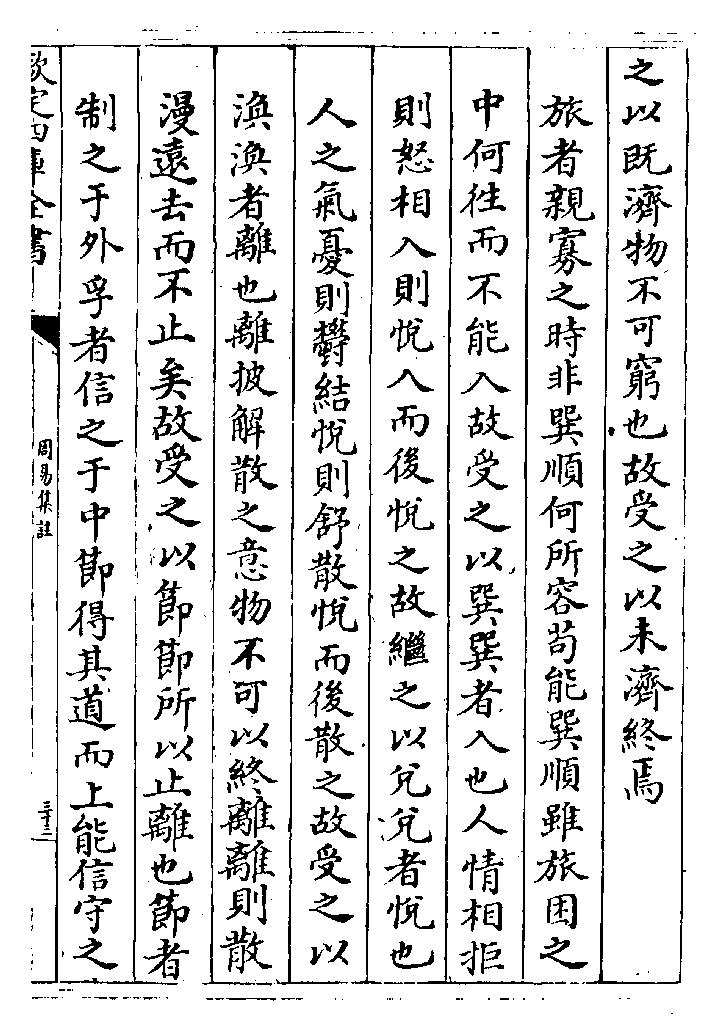 之以既濟物不可窮也故受之以未濟終焉
旅者親寡之時非巽順何所容苟能巽順雖旅困之
中何徃而不能入故受之以巽巽者入也人情相拒
則怒相入則悅入而後悅之故繼之以兌兌者悅也
人之氣憂則鬱結悅則舒散悅而後散之故受之以
渙渙者離也離披解散之意物不可以終離離則散
漫遠去而不止矣故受之以節節所以止離也節者
制之于外孚者信之于中節得其道而上能信守之
欽定四庫全書
周易集註
三十二